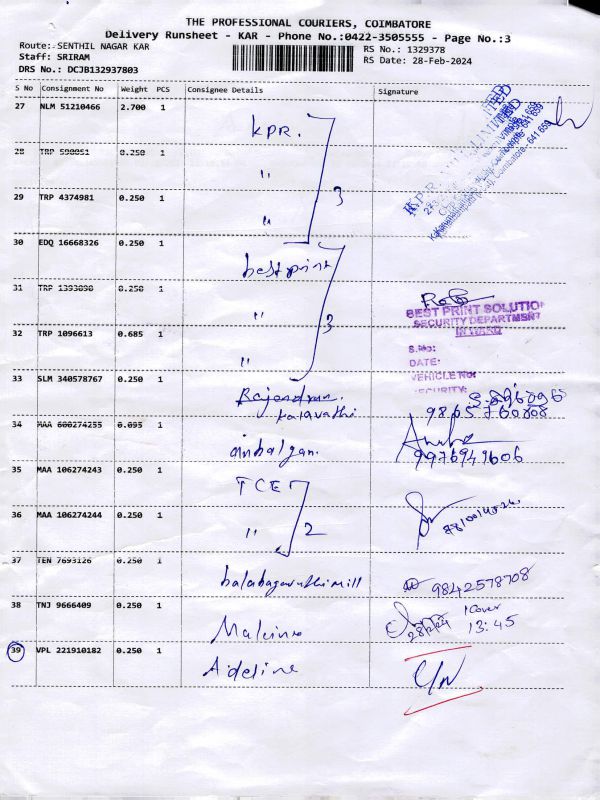 THE PROFESSIONAL COURIERS, COIMBATORE
Delivery Runsheet - KAR - Phone No.:0422-3505555 - Page No.:3
Route: SENTHIL NAGAR KAR
RS No.: 1329378
Staff: SRIRAM
RS Date: 28-Feb-2024
DRS No.: DCJB132937803
S No Consignment No Weight PCS Consignee Details Signature
27 NLM 51210466 2.700 1
KPR.
28 TRP 0.250 1
"
29 TRP 4374981 0.250 1
" 3
30 EDQ 16668326 0.250 1
best print
31 TRP 1393090 0.250 1
" 3
BEST PRINT SOLUTION
SECURITY DEPARTMENT
IN WARD
32 TRP 1096613 0.685 1
"
S.No:
DATE:
VEHICLE NO:
SECURITY:
33 SLM 340578767 0.250 1
Rajendran.
Kalavathi
9865760808
34 MAA 600274255 0.095 1
9976949606
35 MAA 106274243 0.250 1
TCE
36 MAA 106274244 0.250 1
" 2
37 TEN 7693126 0.250 1
9842578708
38 TNJ 9666409 0.250 1
1 Cover
28/2/24 13:45
39 VPL 221910182 0.250 1
Adeline